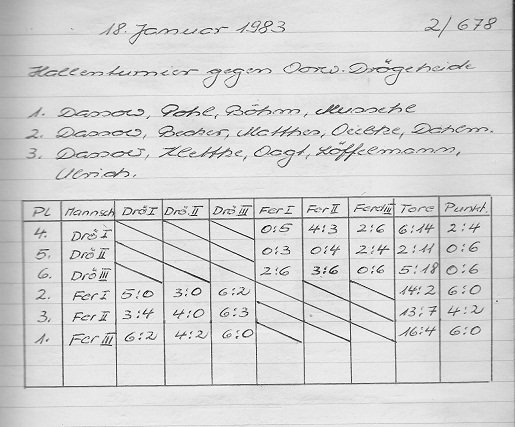 18. Januar 1983 2/678
Hallenturnier gegen Vorw. Drögeheide
1. Dassow, Pohl, Böhm, Muschel
2. Dassow, Becher, Matthes, Dahlm.
3. Dassow, Klettke, Vagt, Löffelmann,
Ulrich.
Pl Mannsch Drö I Drö. II Drö III Fer I Fer II Ferd III Tore Punkt.
4. Drö I 0:5 4:3 2:6 6:14 2:4
5. Drö II 0:3 0:4 2:4 2:11 0:6
6. Drö III 2:6 3:6 0:6 5:18 0:6
2. Fer I 5:0 3:0 6:2 14:2 6:0
3. Fer II 3:4 4:0 6:3 13:7 4:2
1. Fer III 6:2 4:2 6:0 16:4 6:0